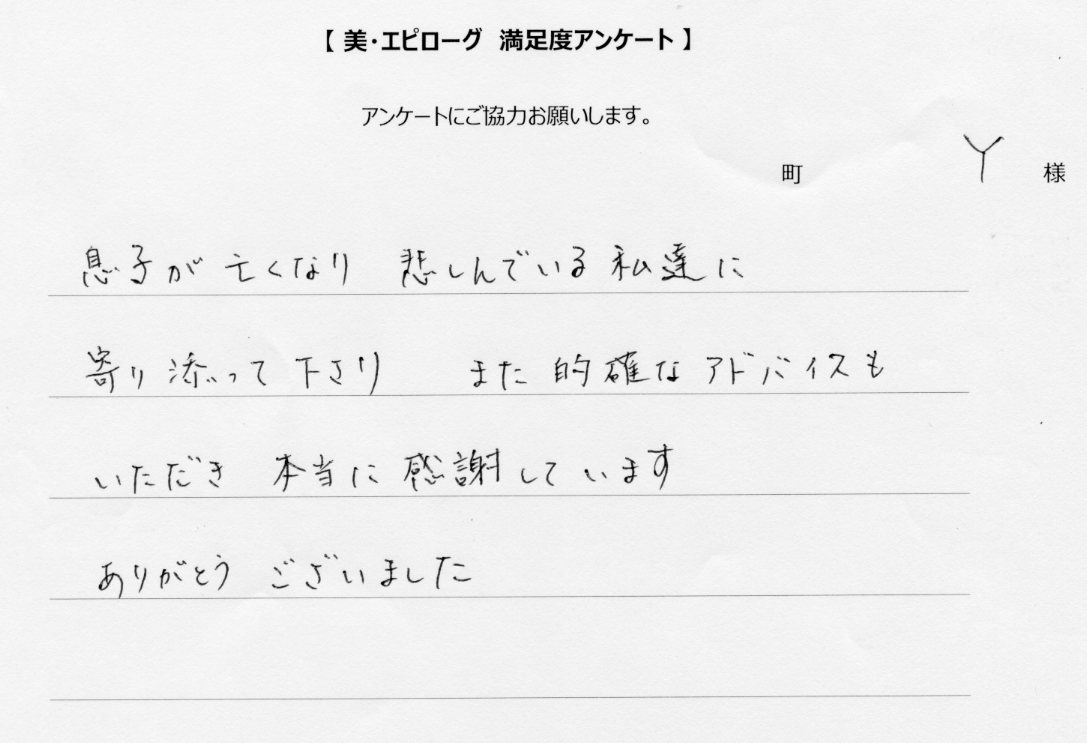 【 美・エピローグ 満足度アンケート 】
アンケートにご協力お願いします。
町 Y 様
息子が亡くなり 悲しんでいる私達に
寄り添って下さり また的確なアドバイスも
いただき 本当に感謝しています
ありがとう ございました